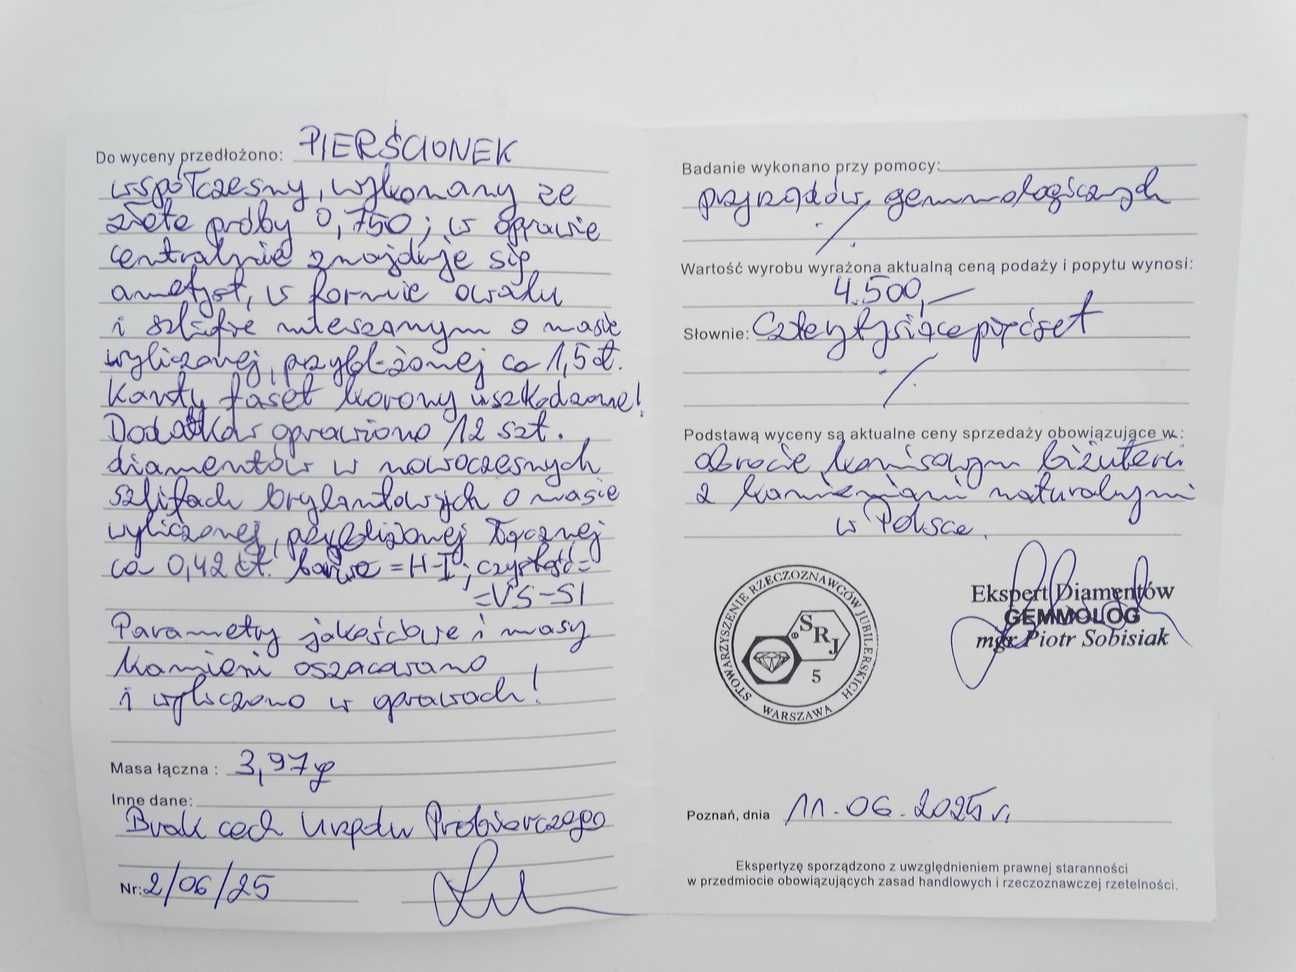 Do wyceny przedłożono: PIERŚCIONEK
współczesny, wykonany ze
złota próby 0,750; w oprawie
centralnie znajduje się
ametyst, w formie owalu
i szlifie mieszanym o masie
wyliczonej, przybliżonej ca 1,5 ct.
Kanty faset korony uszkodzone!
Dodatkowo oprawiono 12 szt.
diamentów w nowoczesnych
szlifach brylantowych o masie
wyliczonej, przybliżonej łącznej
ca 0,42 ct. barwa = H-I; czystość =
= VS-SI
Parametry jakościowe i masy
kamieni oszacowano
i wyliczono w oprawach!
Masa łączna: 3,97 g
Inne dane:
Brak cech Urzędu Probierczego
Nr: 2/06/25
Badanie wykonano przy pomocy:
przyrządów gemmologicznych
Wartość wyrobu wyrażona aktualną ceną podaży i popytu wynosi:
4.500,—
Słownie: Cztery tysiące pięćset
Podstawą wyceny są aktualne ceny sprzedaży obowiązujące w:
obrocie komisowym biżuterii
z kamieniami naturalnymi
w Polsce.
STOWARZYSZENIE RZECZOZNAWCÓW JUBILERSKICH
WARSZAWA
® SRJ
5
Ekspert Diamentów
GEMMOLOG
mgr Piotr Sobisiak
Poznań, dnia 11.06.2025 r.
Ekspertyzę sporządzono z uwzględnieniem prawnej staranności
w przedmiocie obowiązujących zasad handlowych i rzeczoznawczej rzetelności.